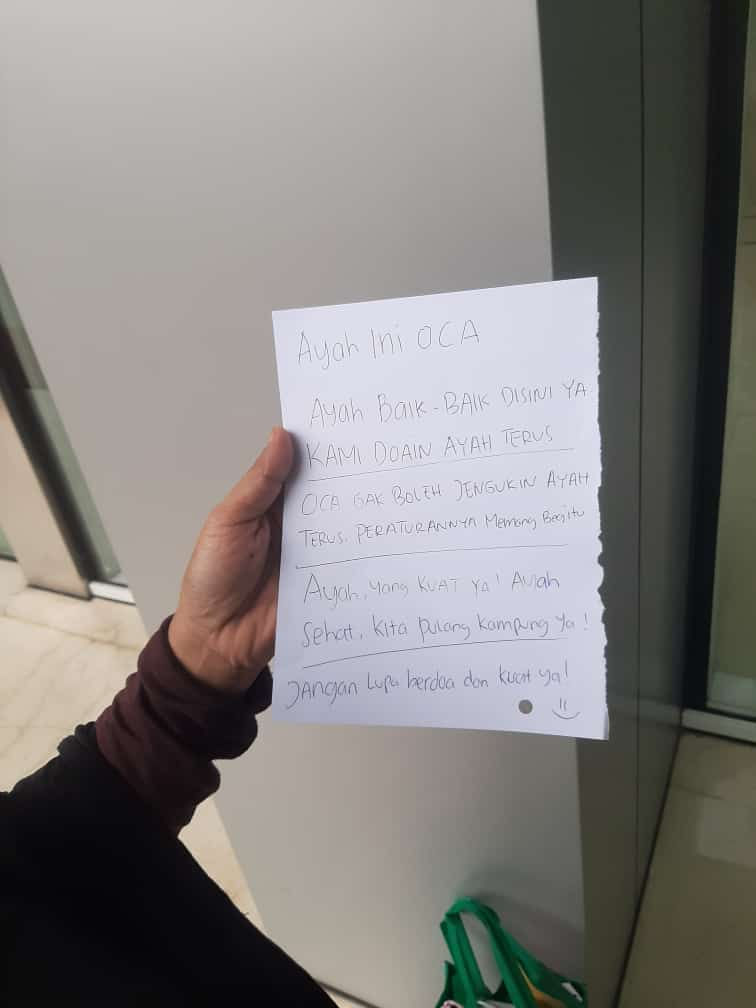 Ayah Ini OCA
Ayah Baik-BAIK DISINI YA
KAMI DOAIN AYAH TERUS
OCA GAK BOLEH JENGUKIN AYAH
TERUS. PERATURANNYA Memang Begitu
Ayah, yang KUAT ya! Ayah
Sehat, Kita pulang kampung ya!
JANGAN Lupa berdoa dan kuat ya!